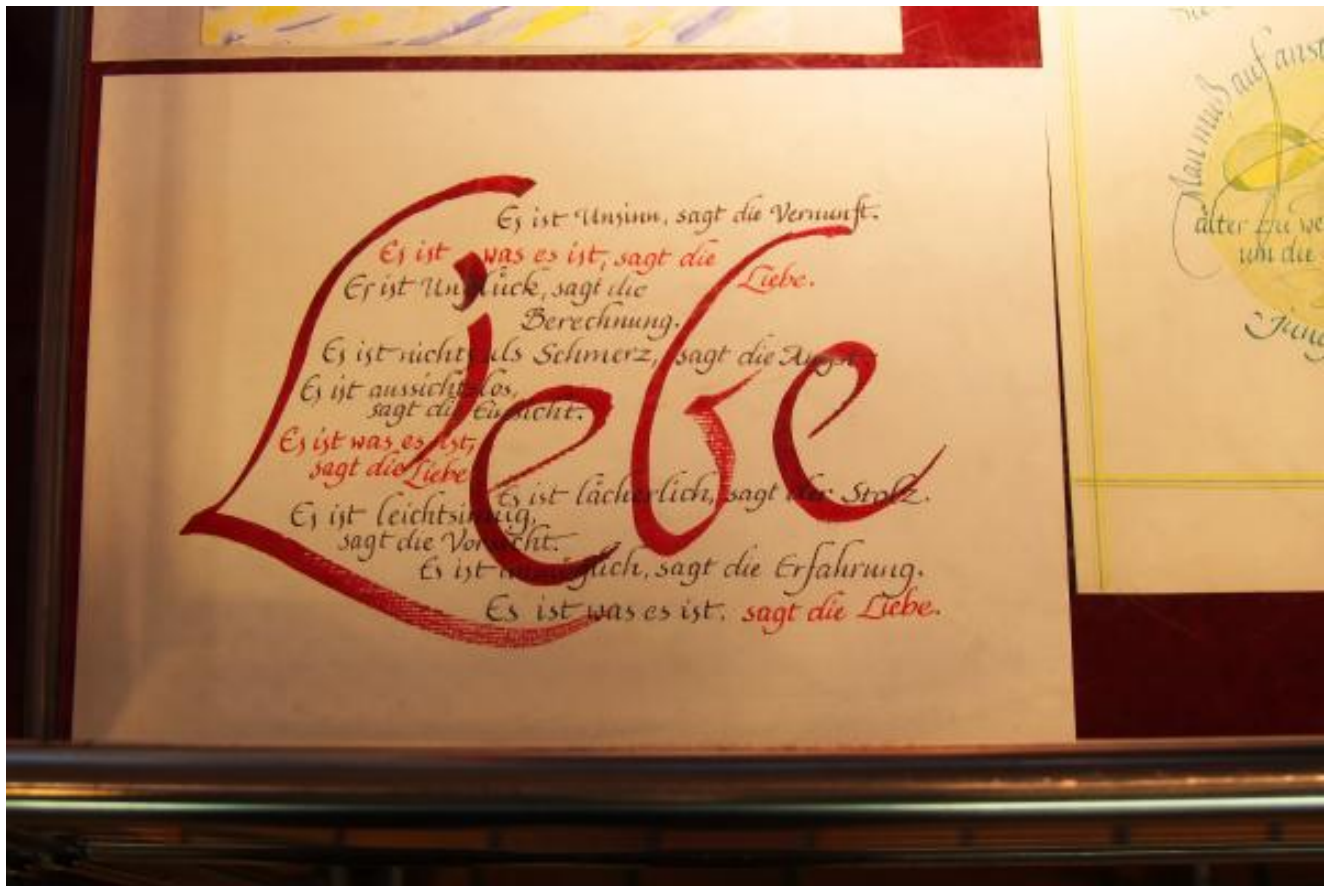 Liebe
Es ist Unsinn, sagt die Vernunft.
Es ist was es ist, sagt die
Liebe.
Es ist Unglück, sagt die
Berechnung.
Es ist nichts als Schmerz, sagt die Angst.
Es ist aussichtslos,
sagt die Einsicht.
Es ist was es ist,
sagt die Liebe
Es ist lächerlich, sagt der Stolz.
Es ist leichtsinnig,
sagt die Vorsicht.
Es ist unmöglich, sagt die Erfahrung.
Es ist was es ist. sagt die Liebe.
Man muß auf anst
älter zu we
um die
Jung